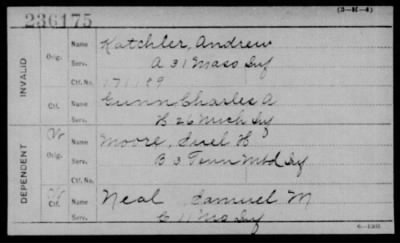 236175
(3-K-4)
INVALID
Orig.
Name Katchler, Andrew
Serv. A 31 Mass Inf
Ctf. No.
Ctf.
Name Gunn Charles A
Serv. H 26 Mich Inf
DEPENDENT
W
Orig.
Name Moore, H
Serv. B 3 Tenn Mtd Inf
Ctf. No.
Ctf.
Name Neal Samuel M
Serv. C 11 Mo Inf